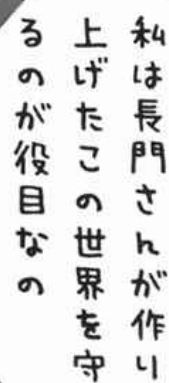 私は長門さんが作り
上げたこの世界を守
るのが役目なの